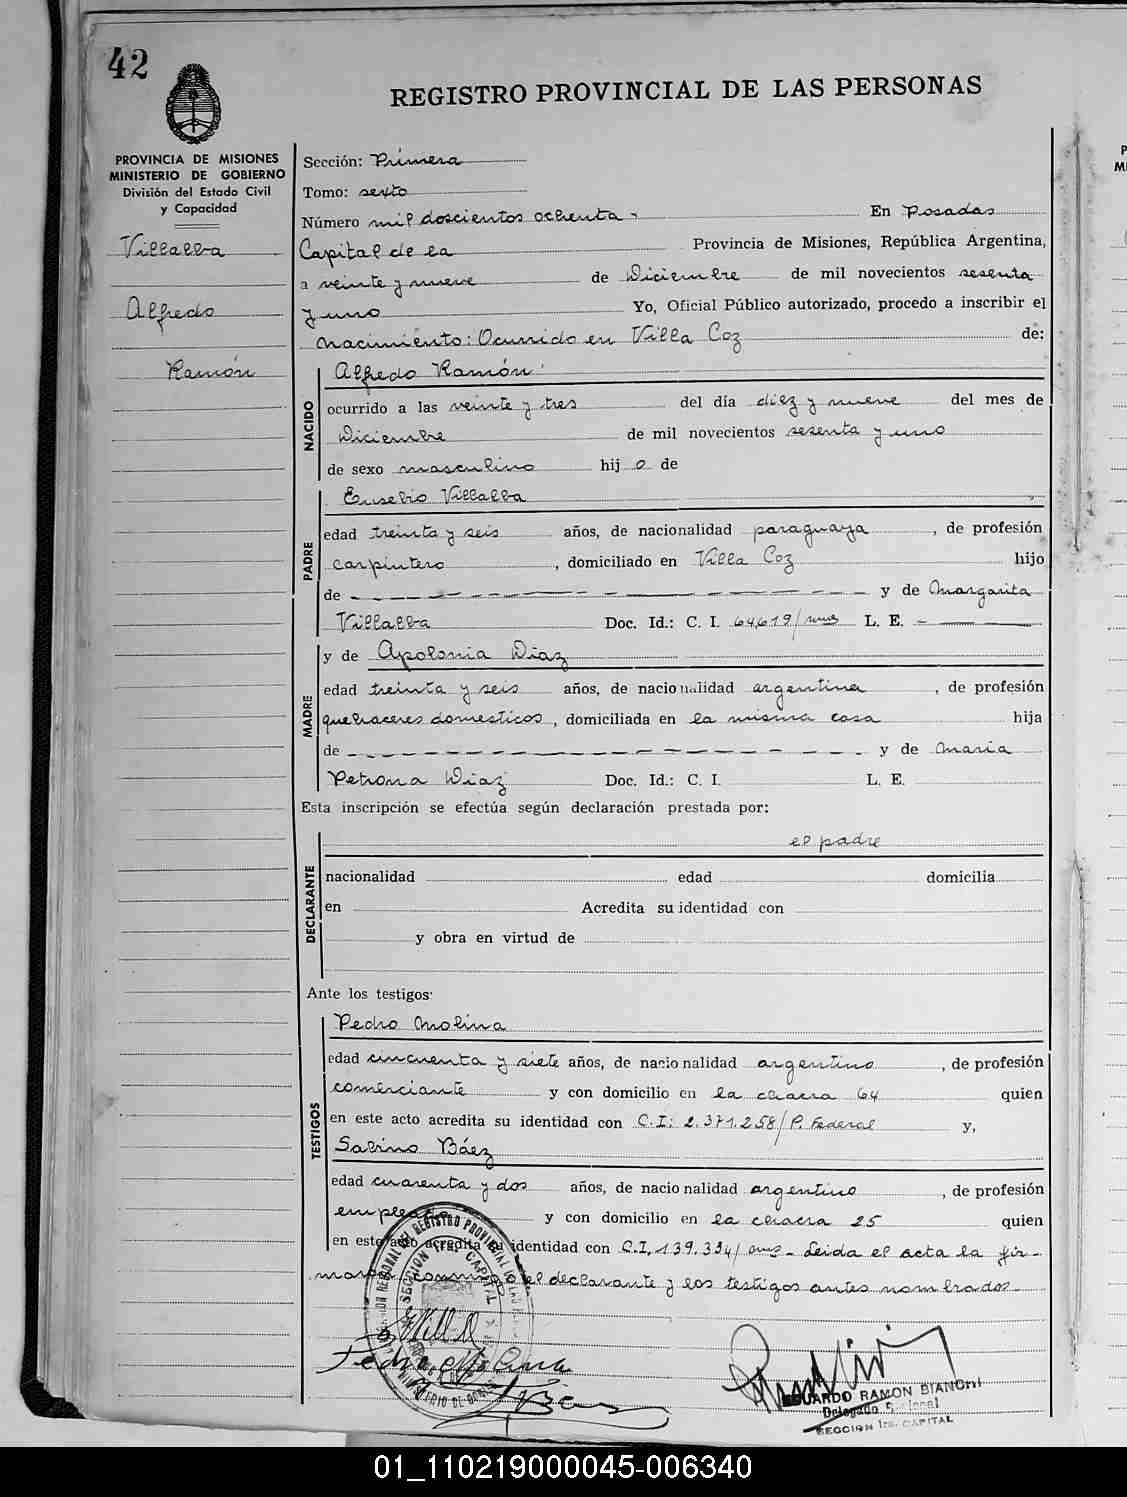 42
REGISTRO PROVINCIAL DE LAS PERSONAS
PROVINCIA DE MISIONES
MINISTERIO DE GOBIERNO
División del Estado Civil
y Capacidad
Villalba
Alfredo
Ramón
Sección: Primera
Tomo: sexto
Número mil doscientos ochenta - En Posadas
Capital de la Provincia de Misiones, República Argentina,
a veinte y nueve de Diciembre de mil novecientos sesenta
y uno Yo, Oficial Público autorizado, procedo a inscribir el
nacimiento: Ocurrido en Villa Coz de:
NACIDO
Alfredo Ramón
ocurrido a las veinte y tres del día diez y nueve del mes de
Diciembre de mil novecientos sesenta y uno
de sexo masculino hij o de
PADRE
Eusebio Villalba
edad treinta y seis años, de nacionalidad paraguaya, de profesión
carpintero, domiciliado en Villa Coz hijo
de y de Margarita
Villalba Doc. Id.: C. I. 64,619/ L. E.
MADRE
y de Apolonia Diaz
edad treinta y seis años, de nacionalidad argentina, de profesión
quehaceres domesticos, domiciliada en la misma casa hija
de y de Maria
Petrona Diaz Doc. Id.: C. I. L. E.
Esta inscripción se efectúa según declaración prestada por:
DECLARANTE
el padre
nacionalidad edad domicilia
en Acredita su identidad con
y obra en virtud de
Ante los testigos:
TESTIGOS
Pedro Molina
edad cincuenta y siete años, de nacionalidad argentino, de profesión
comerciante y con domicilio en la chacra 64 quien
en este acto acredita su identidad con C.I: 2.371.258/P. Federal y,
Sabino Báez
edad cuarenta y dos años, de nacionalidad argentino, de profesión
empleado y con domicilio en la chacra 25 quien
en este acto acredita su identidad con C.I. 139.334/ - Leida el acta la fir-
maron conmigo el declarante y los testigos antes nombrados.
Pedro Molina
EDUARDO RAMON BIANCHI
Delegado Regional
SECCION 1ra. CAPITAL
01_110219000045-006340